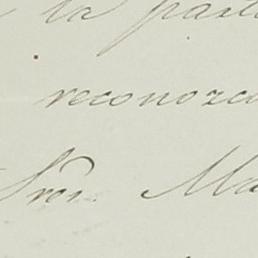 la part
reconozca
Sres. Ma